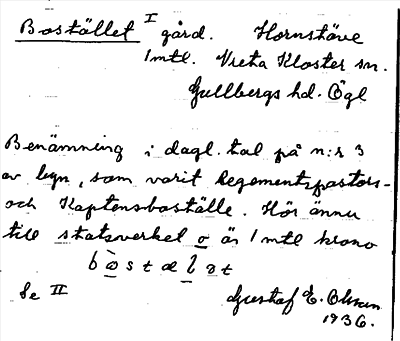 Bostället I gård. Hornstäve
1 mtl. Vreta Kloster sn.
Gullbergs hd. Ögl
Benämning i dagl. tal på n:r 3
av byn, som varit Regementspastors-
och Kaptensboställe. Hör ännu
till statsverket o är 1 mtl krono
bòstælət
Se II Gustaf E. Olsson
1936.